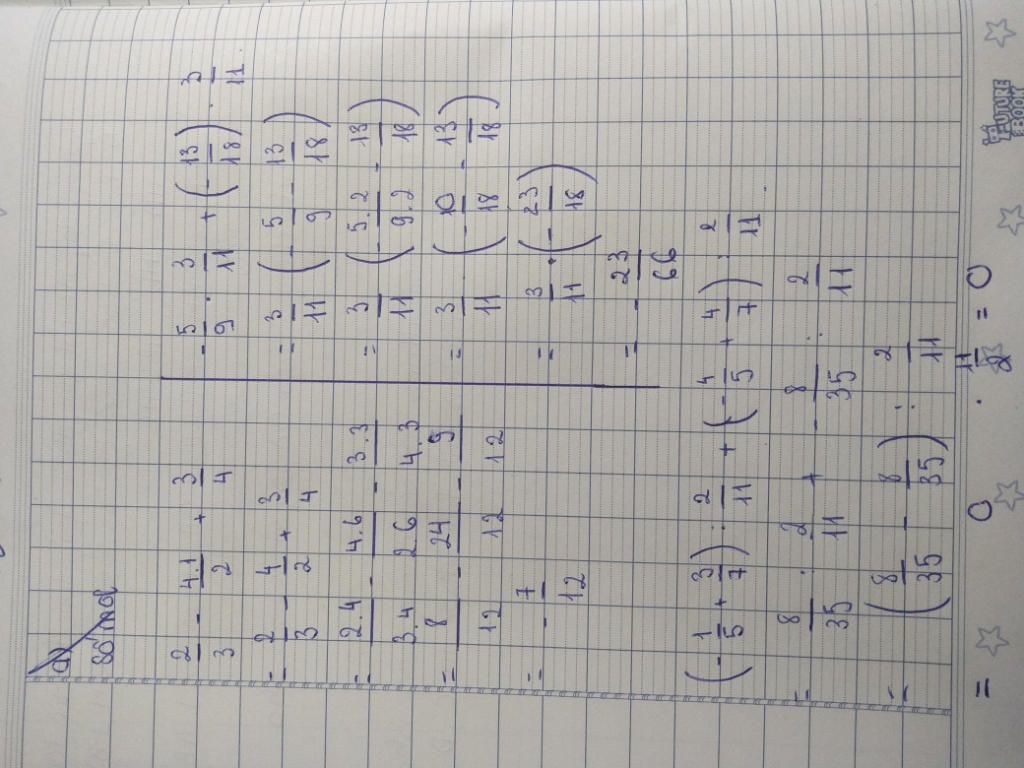 a)
Số mol
2/3 - 4.1/2 + 3/4
= 2/3 - 4/2 + 3/4
= 2.4/3.4 - 4.6/2.6 - 3.3/4.3
= 8/12 - 24/12 - 9/12
= - 7/12
- 5/9 . 3/11 + (- 13/18) . 3/11
= 3/11 (- 5/9 - 13/18)
= 3/11 (- 5.2/9.2 - 13/18)
= 3/11 (- 10/18 - 13/18)
= 3/11 . (- 23/18)
= - 23/66
(- 1/5 + 3/7) : 2/11 + (- 4/5 + 4/7) : 2/11
= 8/35 : 2/11 + - 8/35 : 2/11
= (8/35 - 8/35) : 2/11
= 0 . 11/2 = 0
FUTURE
BOOK